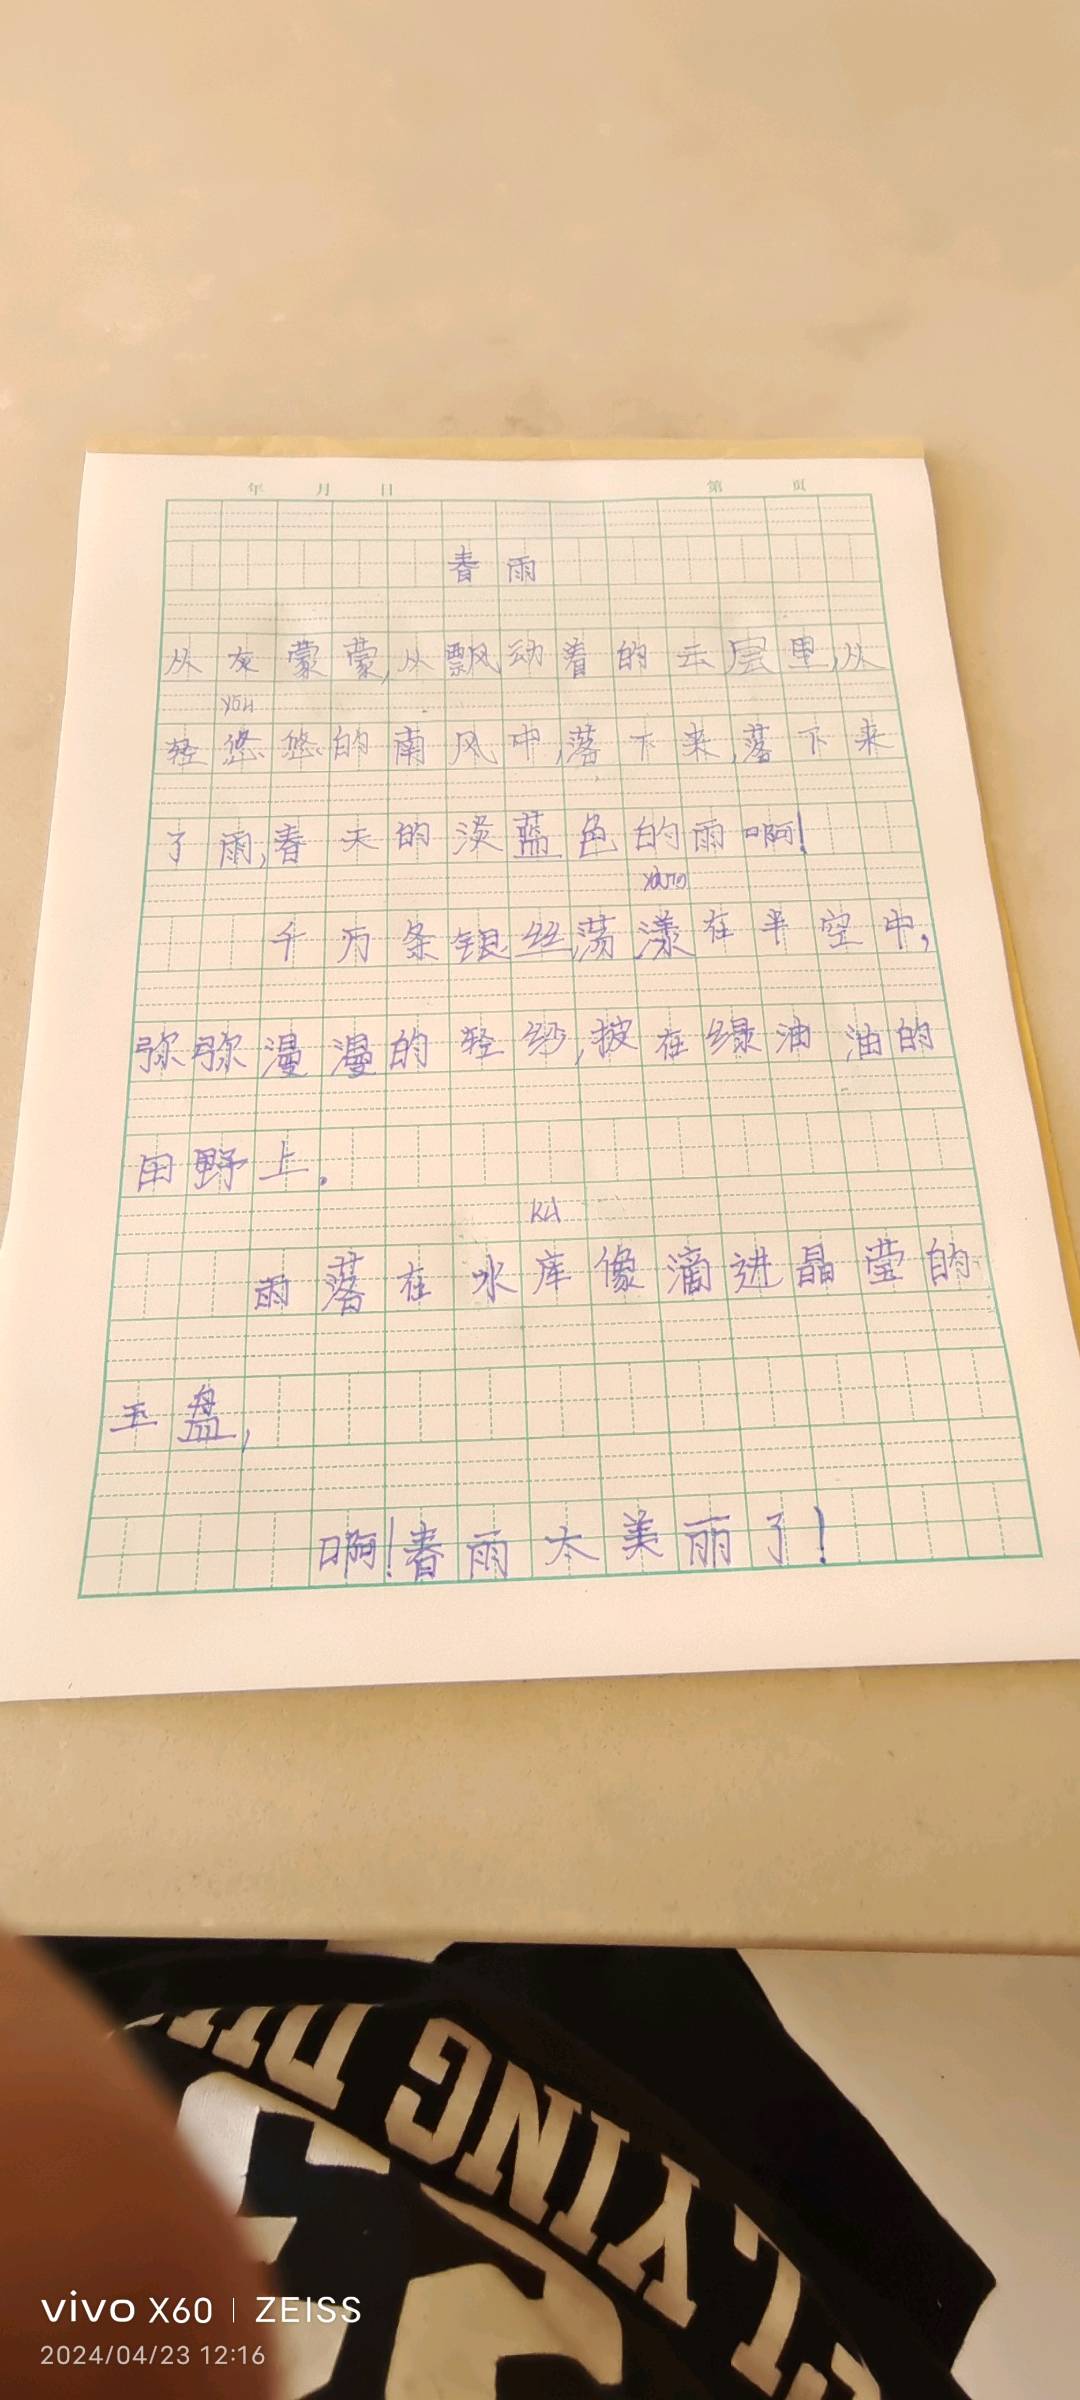 年 月 日 第 页
春雨
从灰蒙蒙,从飘动着的云层里,从
yōu
轻悠悠的南风中,落下来,落下来
了雨,春天的淡蓝色的雨啊!
yàng
千万条银丝,荡漾在半空中,
弥弥漫漫的轻纱,披在绿油油的
田野上。
kù
雨落在水库像滴进晶莹的
玉盘,
啊!春雨太美丽了!
YING
vivo X60 | ZEISS
2024/04/23 12:16